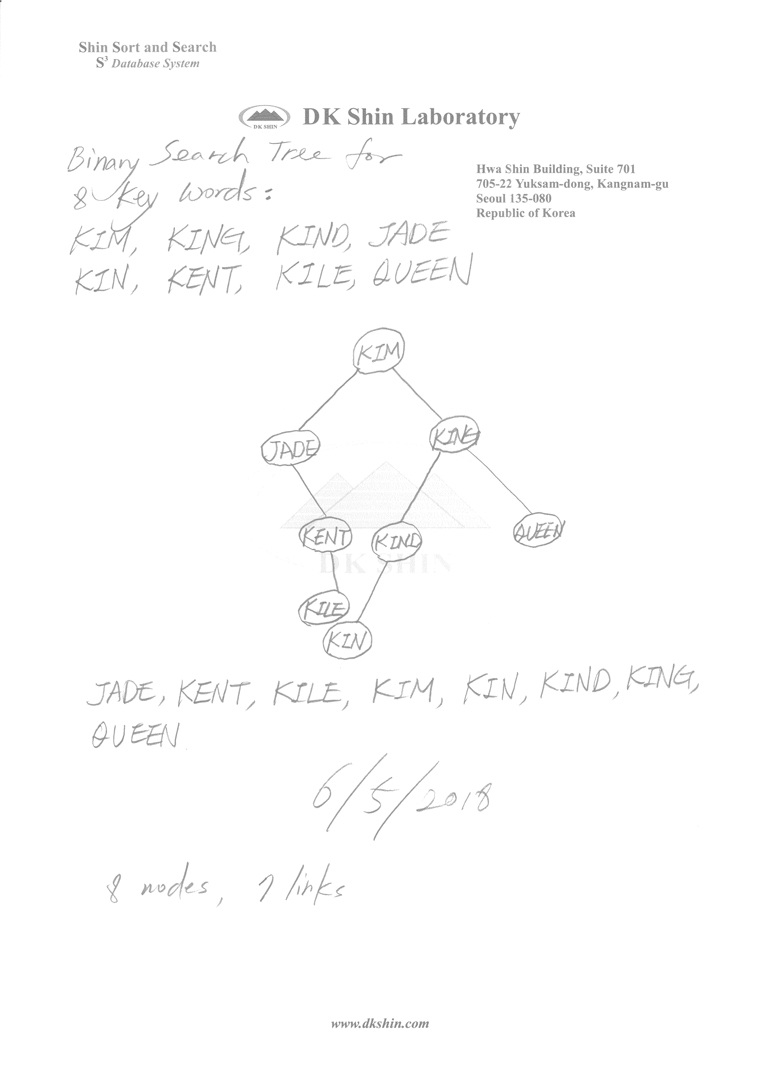 Shin Sort and Search
S³ Database System
DK SHIN
DK Shin Laboratory
Binary Search Tree for
8 Key Words:
Hwa Shin Building, Suite 701
705-22 Yuksam-dong, Kangnam-gu
Seoul 135-080
Republic of Korea
KIM, KING, KIND, JADE
KIN, KENT, KILE, QUEEN
KIM
JADE
KING
KENT
KIND
QUEEN
DK SHIN
KILE
KIN
JADE, KENT, KILE, KIM, KIN, KIND, KING,
QUEEN
6/5/2018
8 nodes, 7 links
www.dkshin.com